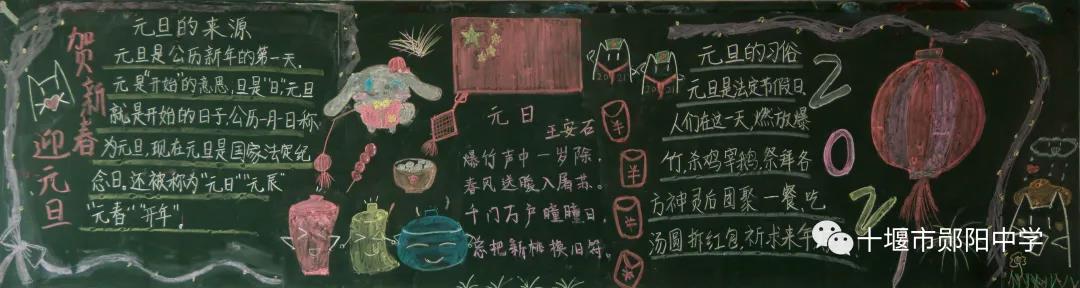 贺新春
迎元旦
元旦的来源
元旦是公历新年的第一天，
元是“开始”的意思，旦是“日”，元旦
就是开始的日子，公历一月一日称
为元旦，现在元旦是国家法定纪
念日。还被称为“元日”“元辰”
“元春”“开年”。
元日
王安石
爆竹声中一岁除，
春风送暖入屠苏。
千门万户曈曈日，
总把新桃换旧符。
2021
2021
元旦的习俗
元旦是法定节假日
人们在这一天，燃放爆
竹，杀鸡宰鹅，祭拜各
方神灵后团聚一餐，吃
汤圆拆红包，祈求来年
2
0
2
十堰市郧阳中学